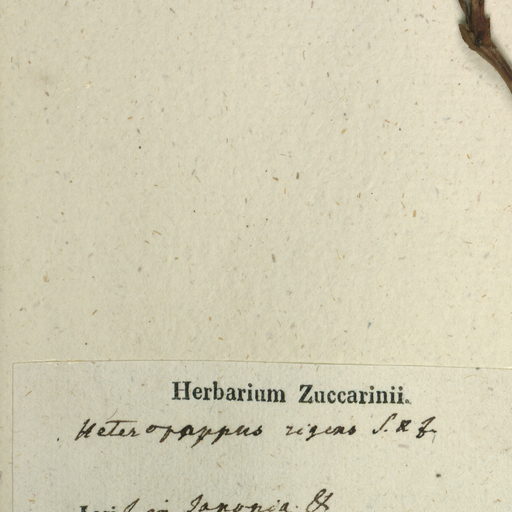 Herbarium Zuccarinii.
Heteropappus rigens S. & Z.
Japonia